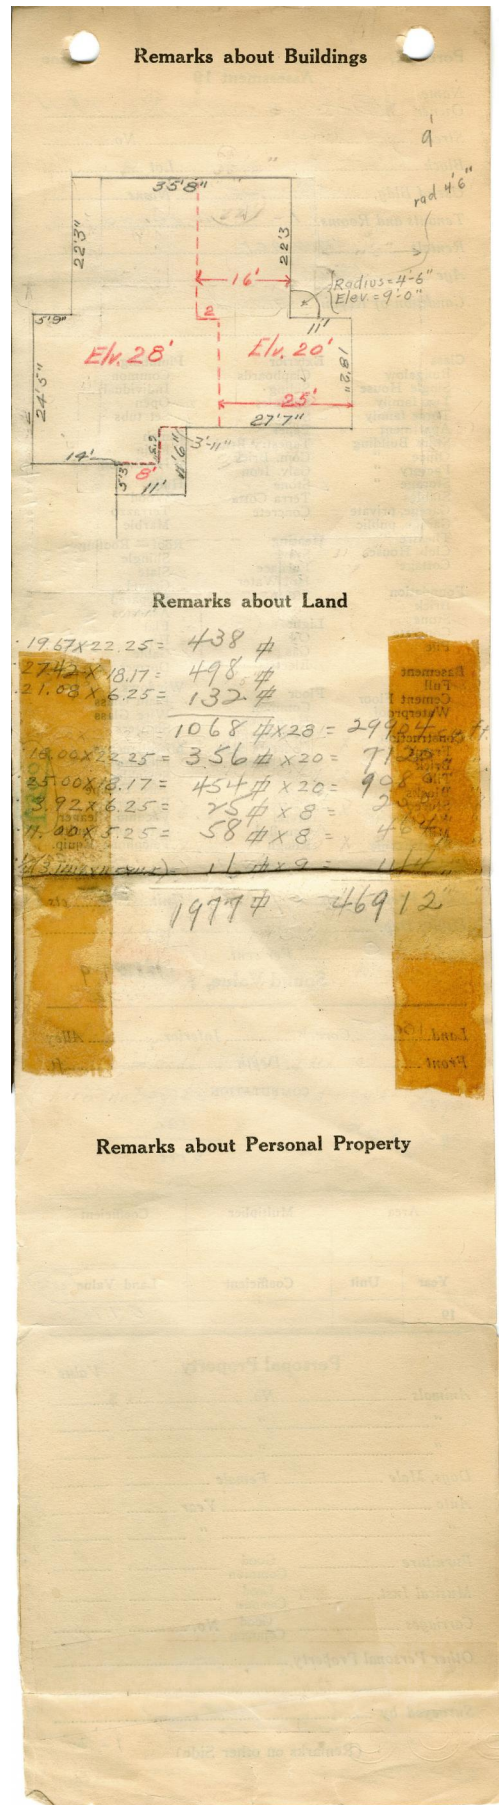 Remarks about Buildings
9'
rad 4'6"
35'8"
22'3"
22'3
16'
Radius = 4'-6"
Elev. = 9'-0"
5'9"
2
11'
Elv. 28'
Elv. 20'
24'5"
18'2"
25'
27'7"
3'-11"
14'
5'3
8'
11'
Remarks about Land
19.67 x 22.25 = 438 ⌗
27.42 x 18.17 = 498 ⌗
21.08 x 6.25 = 132 ⌗
1068 ⌗ x 28 = 29904
18.00 x 22.25 = 356 ⌗ x 20 =
25.00 x 18.17 = 454 ⌗ x 20 = 908
3.92 x 6.25 = 25 ⌗ x 8 =
11.00 x 5.25 = 58 ⌗ x 8 = 464
16 ⌗ x 9 =
1977 ⌗ = 46912
Remarks about Personal Property